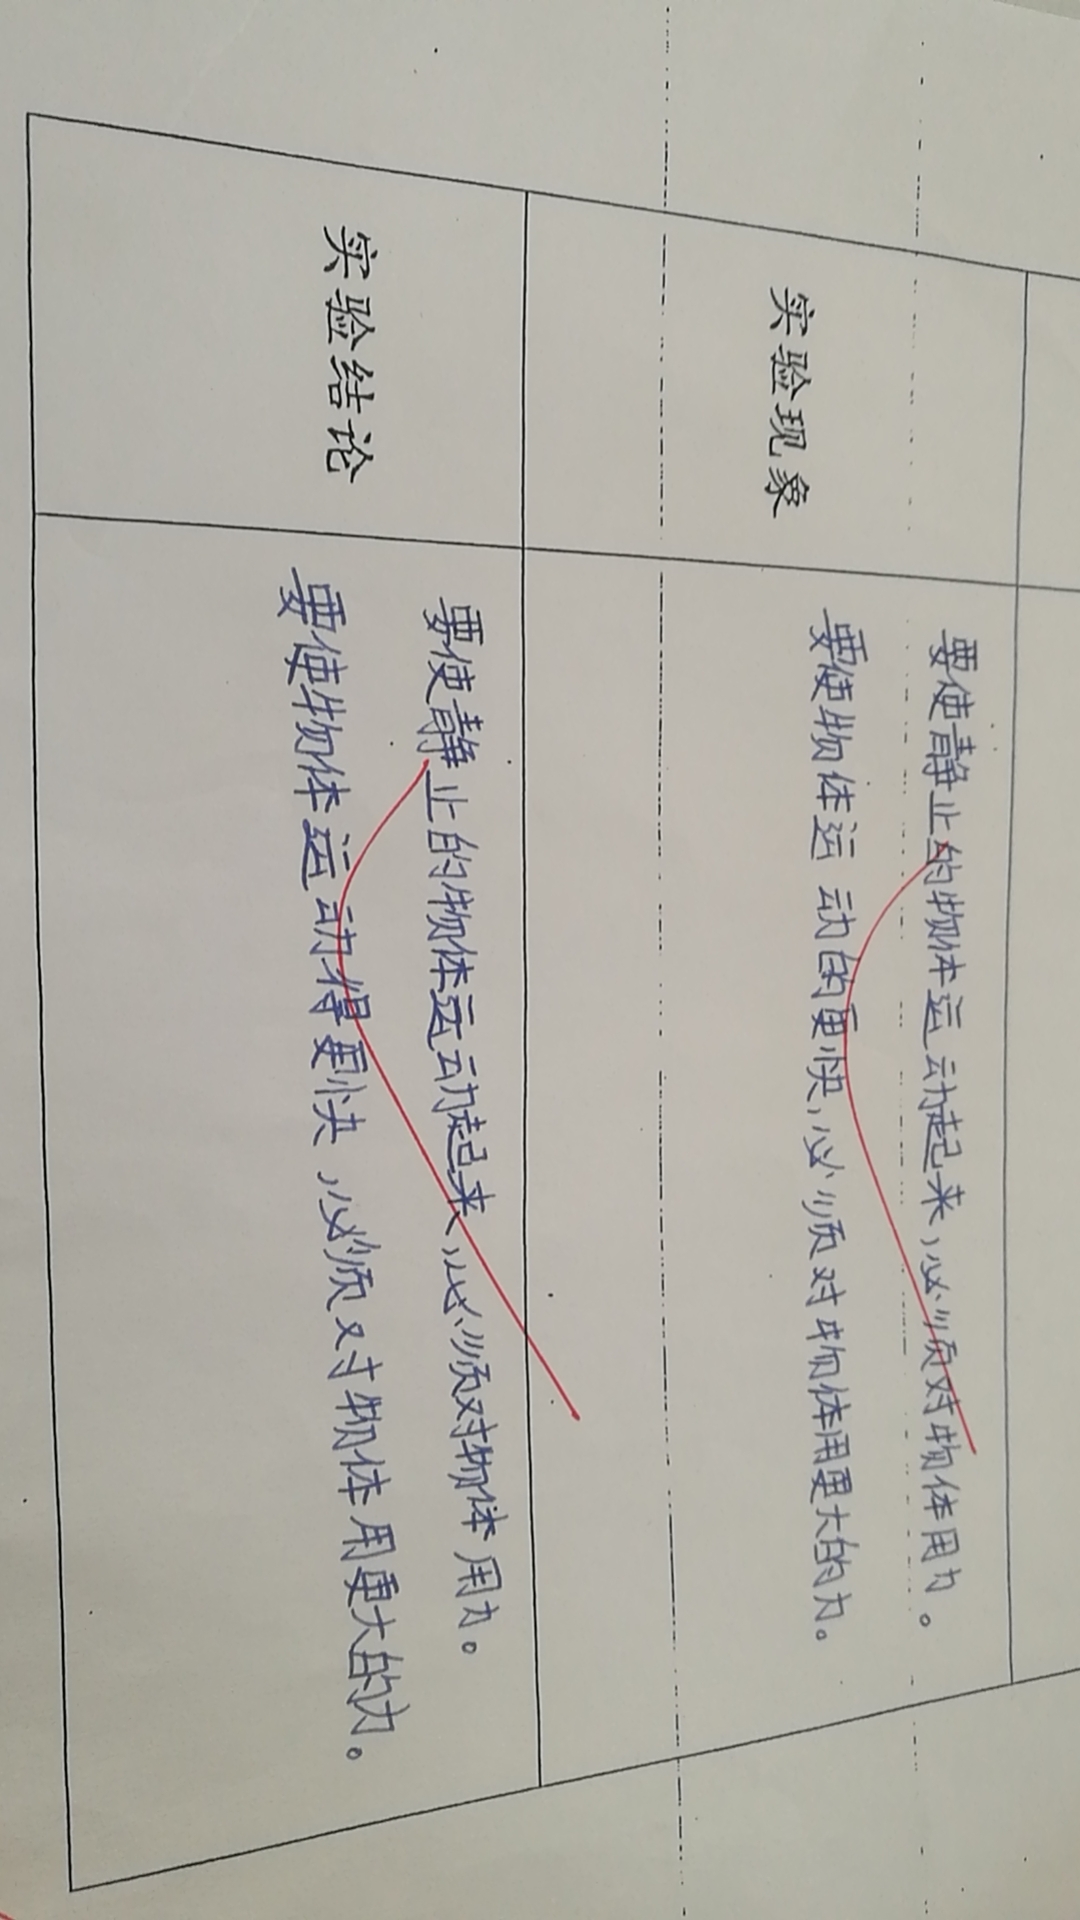 实验现象
要使静止的物体运动起来,必须对物体用力。
要使物体运动的更快,必须对物体用更大的力。
实验结论
要使静止的物体运动起来,必须对物体用力。
要使物体运动得更快,必须对物体用更大的力。